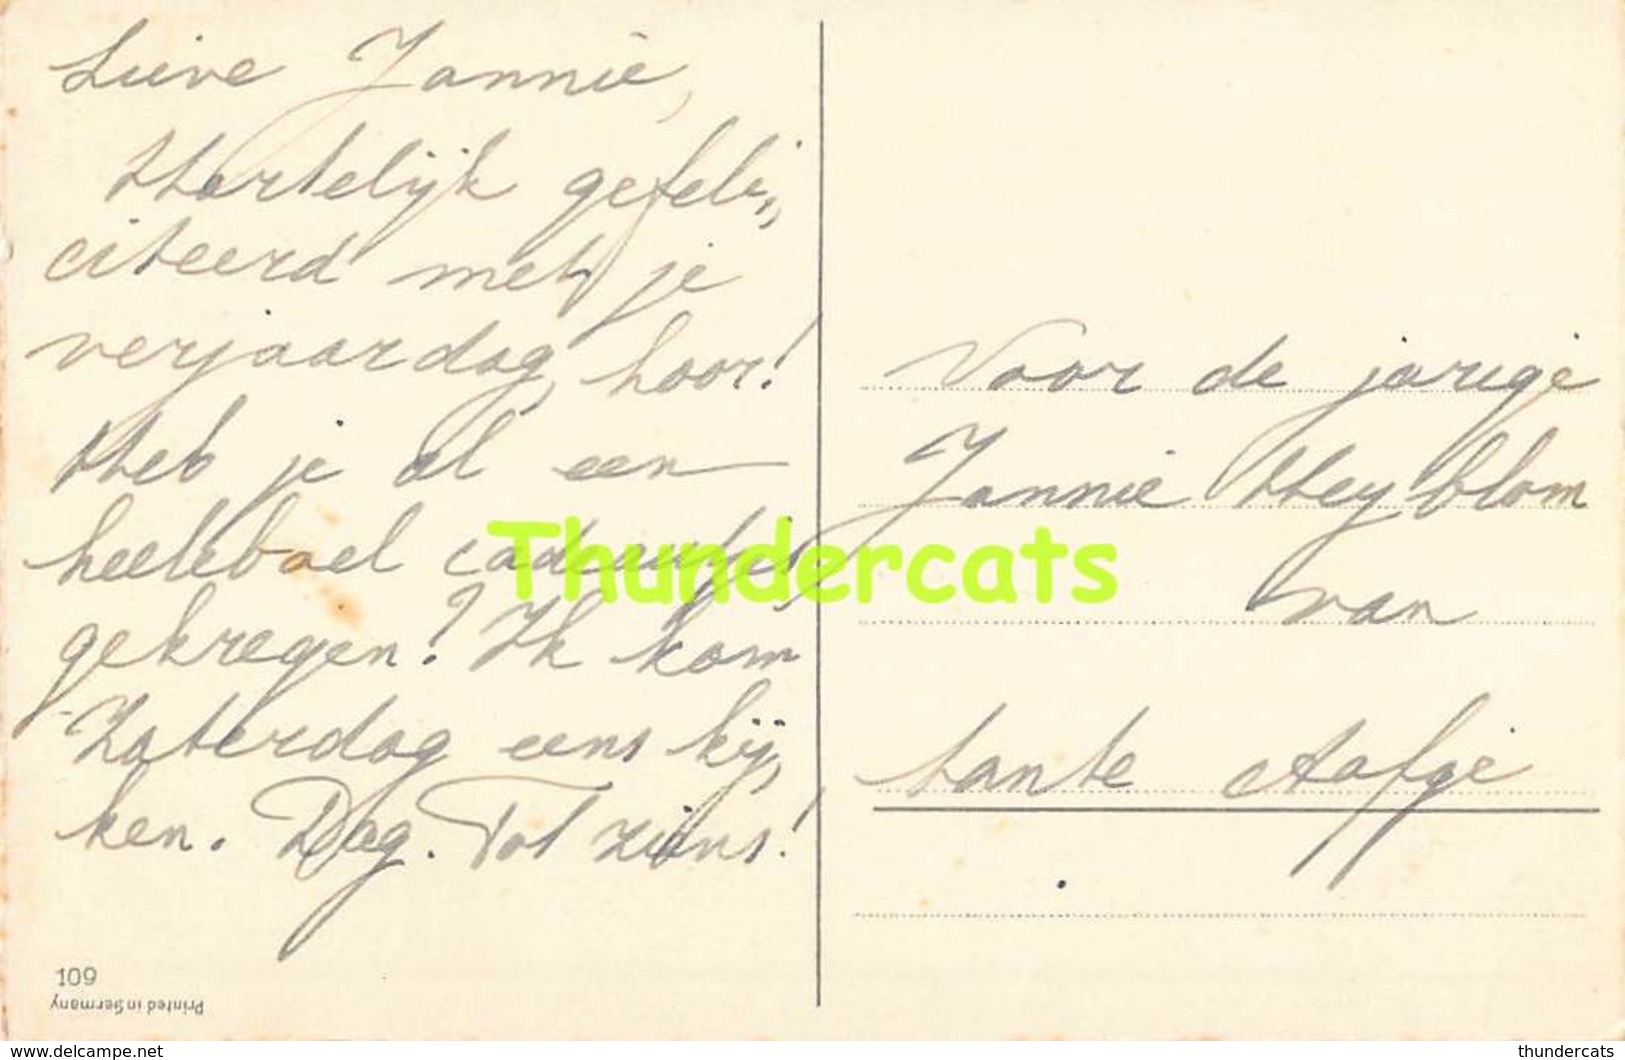 Lieve Jannie,
Hartelijk gefeli„
citeerd met je
verjaardag, hoor!
Heb je al een
heeleboel cadeautjes
gekregen? Ik kom
Zaterdag eens kij„
ken. Dag. Tot ziens!
109
Printed in Germany
Voor de jarige
Jannie Heyblom
van
tante Aafje
Thundercats
www.delcampe.net
thundercats